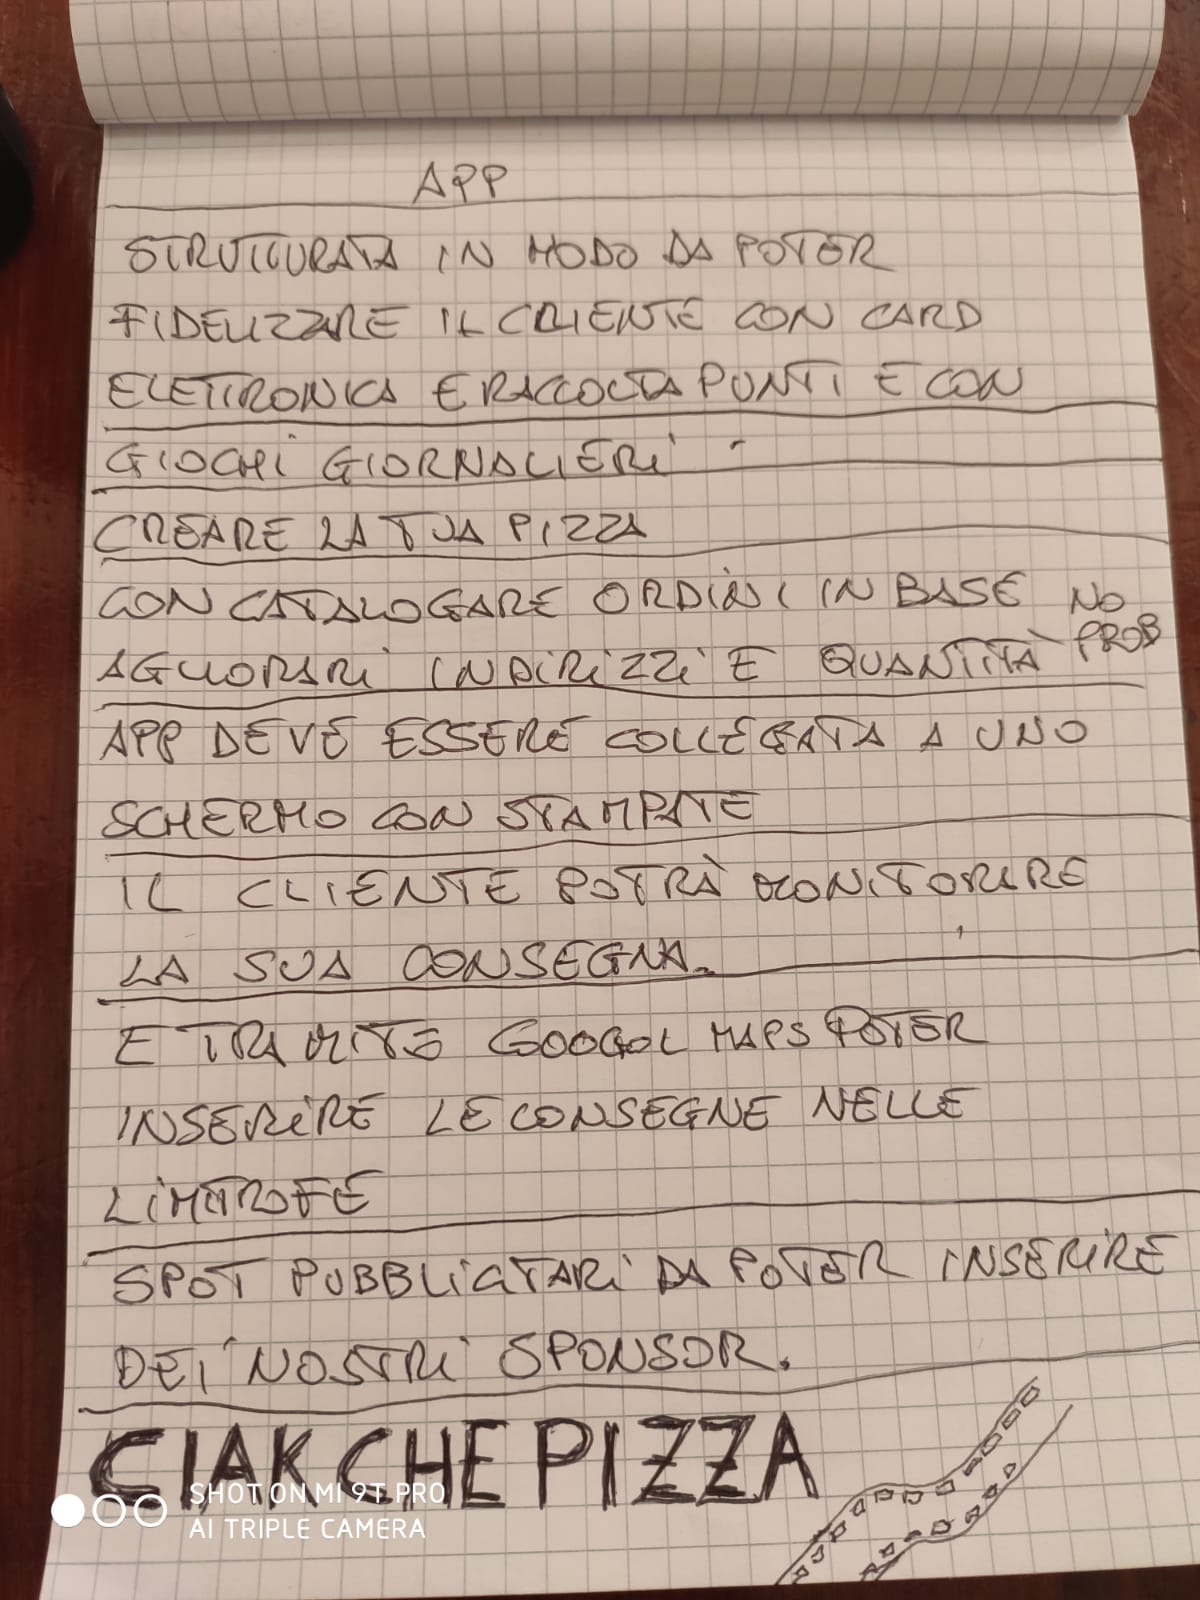 APP
STRUTTURATA IN MODO DA POTER
FIDELIZZARE IL CLIENTE CON CARD
ELETTRONICA E RACCOLTA PUNTI E CON
GIOCHI GIORNALIERI
CREARE LA TUA PIZZA
CON CATALOGARE ORDINI IN BASE NO
AGLI ORARI INDIRIZZI E QUANTITÀ PROB
APP DEVE ESSERE COLLEGATA A UNO
SCHERMO CON STAMPATE
IL CLIENTE POTRÀ MONITORARE
LA SUA CONSEGNA.
E TRAMITE GOOGOL MAPS POTER
INSERIRE LE CONSEGNE NELLE
LIMITROFE
SPOT PUBBLICITARI DA POTER INSERIRE
DEI NOSTRI SPONSOR.
CIAK CHE PIZZA
SHOT ON MI 9T PRO
AI TRIPLE CAMERA